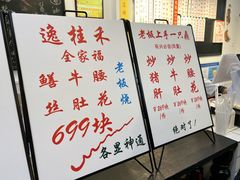 逸桂禾
全家福
鳝牛腰
丝肚花
699块
老板烧
各显神通
老板上手一只鼎
炒炒炒
猪牛腰
肝肚花
绝对了!